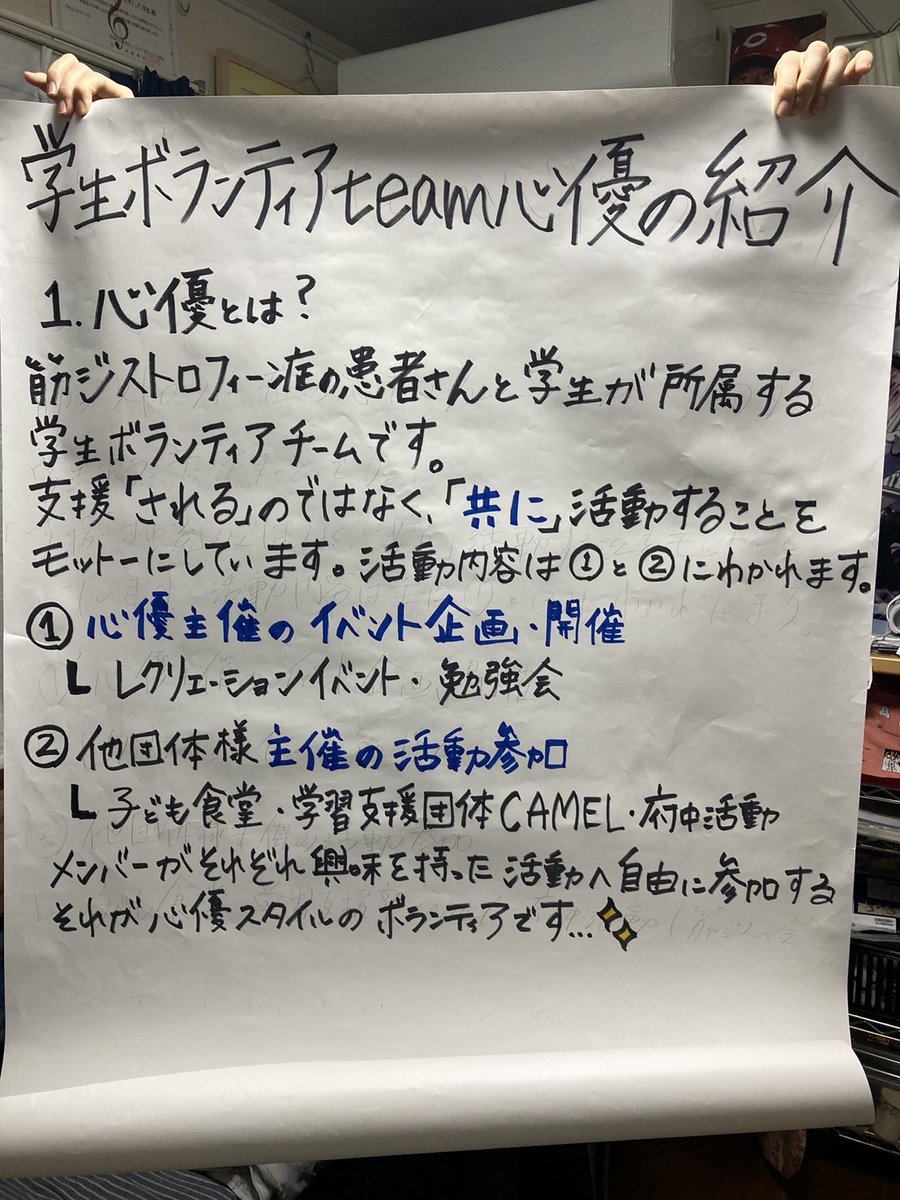 学生ボランティアteam心優の紹介
1. 心優とは?
筋ジストロフィー症の患者さんと学生が所属する
学生ボランティアチームです。
支援「される」のではなく、「共に」活動することを
モットーにしています。活動内容は①と②にわかれます。
①心優主催のイベント企画・開催
┗レクリエーションイベント・勉強会
②他団体様主催の活動参加
┗子ども食堂・学習支援団体CAMEL・府中活動
メンバーがそれぞれ興味を持った活動へ自由に参加する
それが心優スタイルのボランティアです…✨